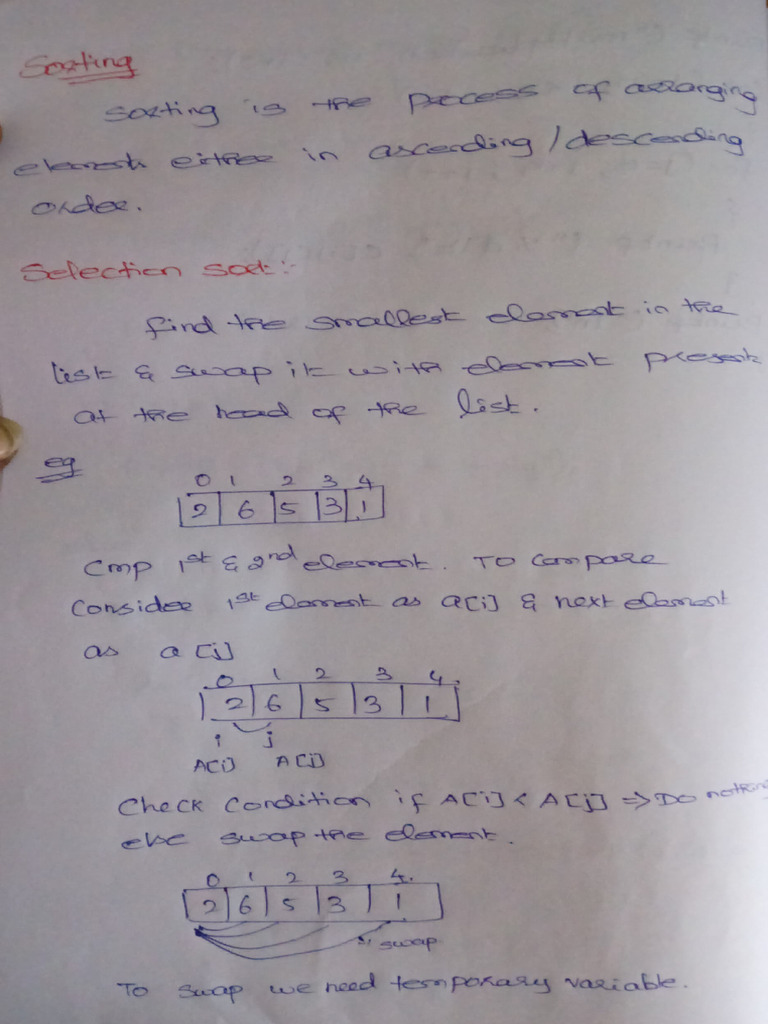 Sorting
Sorting is the process of arranging
elements either in ascending / descending
order.
Selection sort:-
find the smallest element in the
list & swap it with element present
at the head of the list.
eg
0 1 2 3 4
2 6 5 3 1
Cmp 1st & 2nd element. To compare
Consider 1st element as a[i] & next element
as a[j]
0 1 2 3 4.
2 6 5 3 1
i j
A[i] A[j]
Check Condition if A[i] < A[j] => Do nothing
else swap the element.
0 1 2 3 4.
2 6 5 3 1
swap
To swap we need temporary variable.